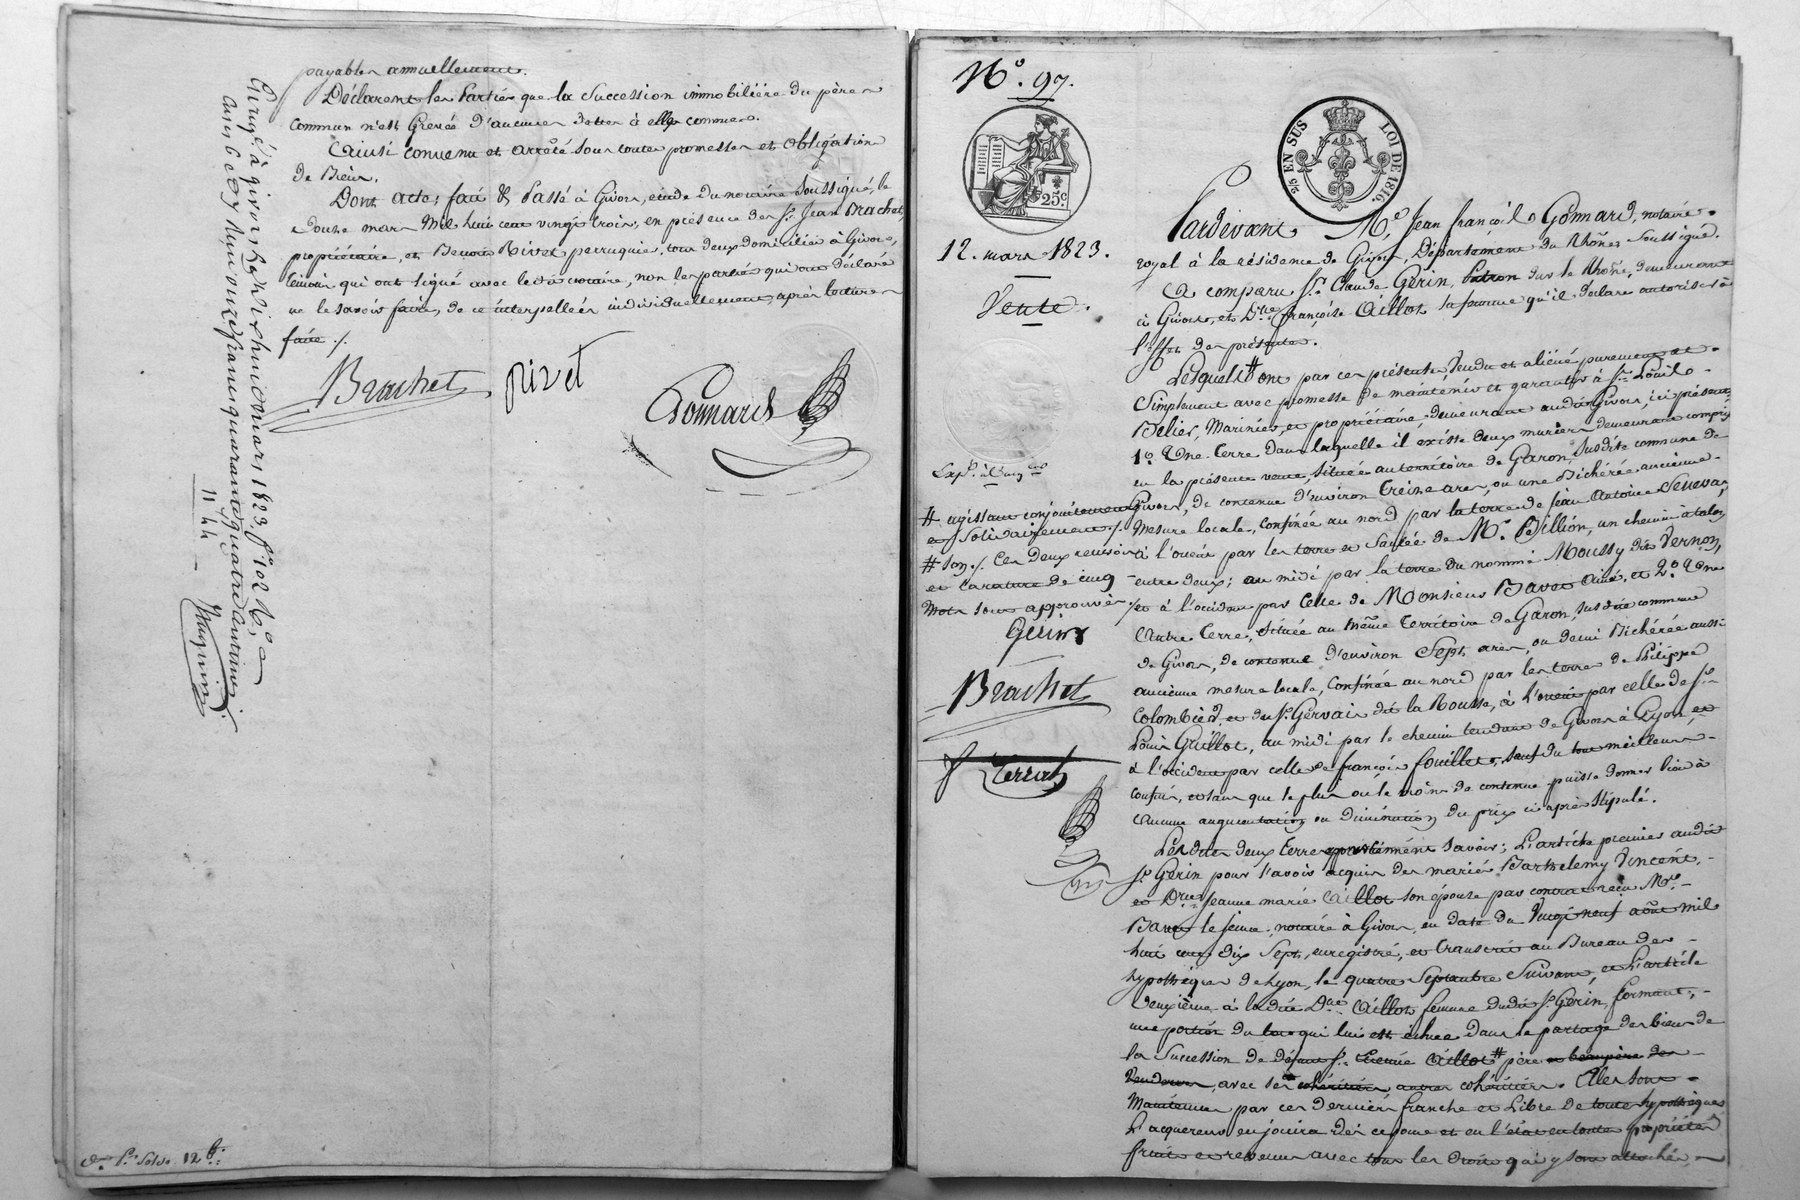 payables annuellement.
Déclarent les Parties que la Succession immobilière du père
commun n'est Grevée d'aucunes dettes à elles connues.
Ainsi convenu et arrêté sous toutes promesses et obligations
de Bien.
Dont acte, fait & Passé à Givors, étude du notaire Soussigné, le
douze mars Mil huit cent vingt trois, en présence des Srs Jean Brachet
propriétaire, et Benoit Rivet perruquier, tous deux domiciliés à Givors,
témoins qui ont signé avec le dit notaire, non les parties qui ont déclaré
ne le savoir faire, de ce interpellées individuellement, après lecture
faite ./.
Brachet rivet Gomard
Enregé à givors le dix huit mars 1823 fo 102
onze francs quarante quatre centimes
11 44
12
No. 97.
25c
5/6 EN SUS LOI DE 1816.
12. mars 1823.
Vente.
Pardevant Me. Jean françois Gomard, notaire
royal à la résidence de Givors, Département du Rhône Soussigné.
A comparu Sr. Claude Gérin, Patron sur le Rhône, demeurant
à Givors, et Dme françoise Aillot sa femme qu'il déclare autoriser à
l'effet des présentes.
Lesquels # ont par ces présentes, Vendu et aliéné purement et
Simplement avec promesse de maintenir et garantir à Sr. Louis
Belier, Marinier, et propriétaire, demeurant audit Givors, ici présent
1o. Une terre dans laquelle il existe deux muriers demeurant compris
en la présente vente, située au territoire de Garon, susdite commune de
Givors, de contenue d'environ treize ares, ou une Bichérée ancienne
Mesure locale, confinée au nord par la terre de Jean Antoine
à l'orient par les terre et Saulée de Mr. Bellion, un chemin à talon
entre deux; au midi par la terre du nommé Moussy dit Vernon,
et à l'occident par celle de Monsieur Bavet ainé, et 2o. Une
Autre terre, située au même territoire de Garon, susdite commune
de Givors, de contenue d'environ Sept ares, ou demi Bichérée aussi
ancienne mesure locale, confinée au nord par les terres de Philippe
Colombier, et du Sr. Gervais dit la Rousse, à l'orient par celle de Sr.
Louis Guillot, au midi par le chemin tendant de Givors à Lyon, et
à l'occident par celle de françois fouillet, sauf du tout meilleurs
confins, et sans que le plus ou le moins de contenue puisse donner lieu à
Aucune augmentation ou diminution du prix ci après stipulé.
Les dites deux terres appartiennent savoir; L'article premier audit
Sr. Gérin pour l'avoir acquis des mariés Barthelemy Vincent,
et Dme Jeanne marie Aillot son épouse par contrat reçu Me
Bavet le jeune, notaire à Givors, en date du Vingt neuf août mil
huit cent dix Sept, enregistré, et transcrit au Bureau des
hypothèques de Lyon, le quatre Septembre Suivant, et L'article
deuxième à la dite Dme Aillot femme dudit Sr. Gérin, formant
une portion du lot qui lui est échue dans le partage des biens de
la Succession de défunt Sr. Aillot # père et beaupère des
Vendeurs, avec ses cohéritiers, autres cohéritiers. Elles sont
Maintenues par ces derniers franche et libre de toutes hypothèques
L'acquereur en jouira dès ce jour et en l'état en toute propriété
fruits et revenus avec tous les droits qui y sont attachés,
# agissant conjointement
et solidairement ./.
# son ./. Ces deux renvois
et la rature de cinq
Mots sont approuvés ./.
Gérin
Brachet